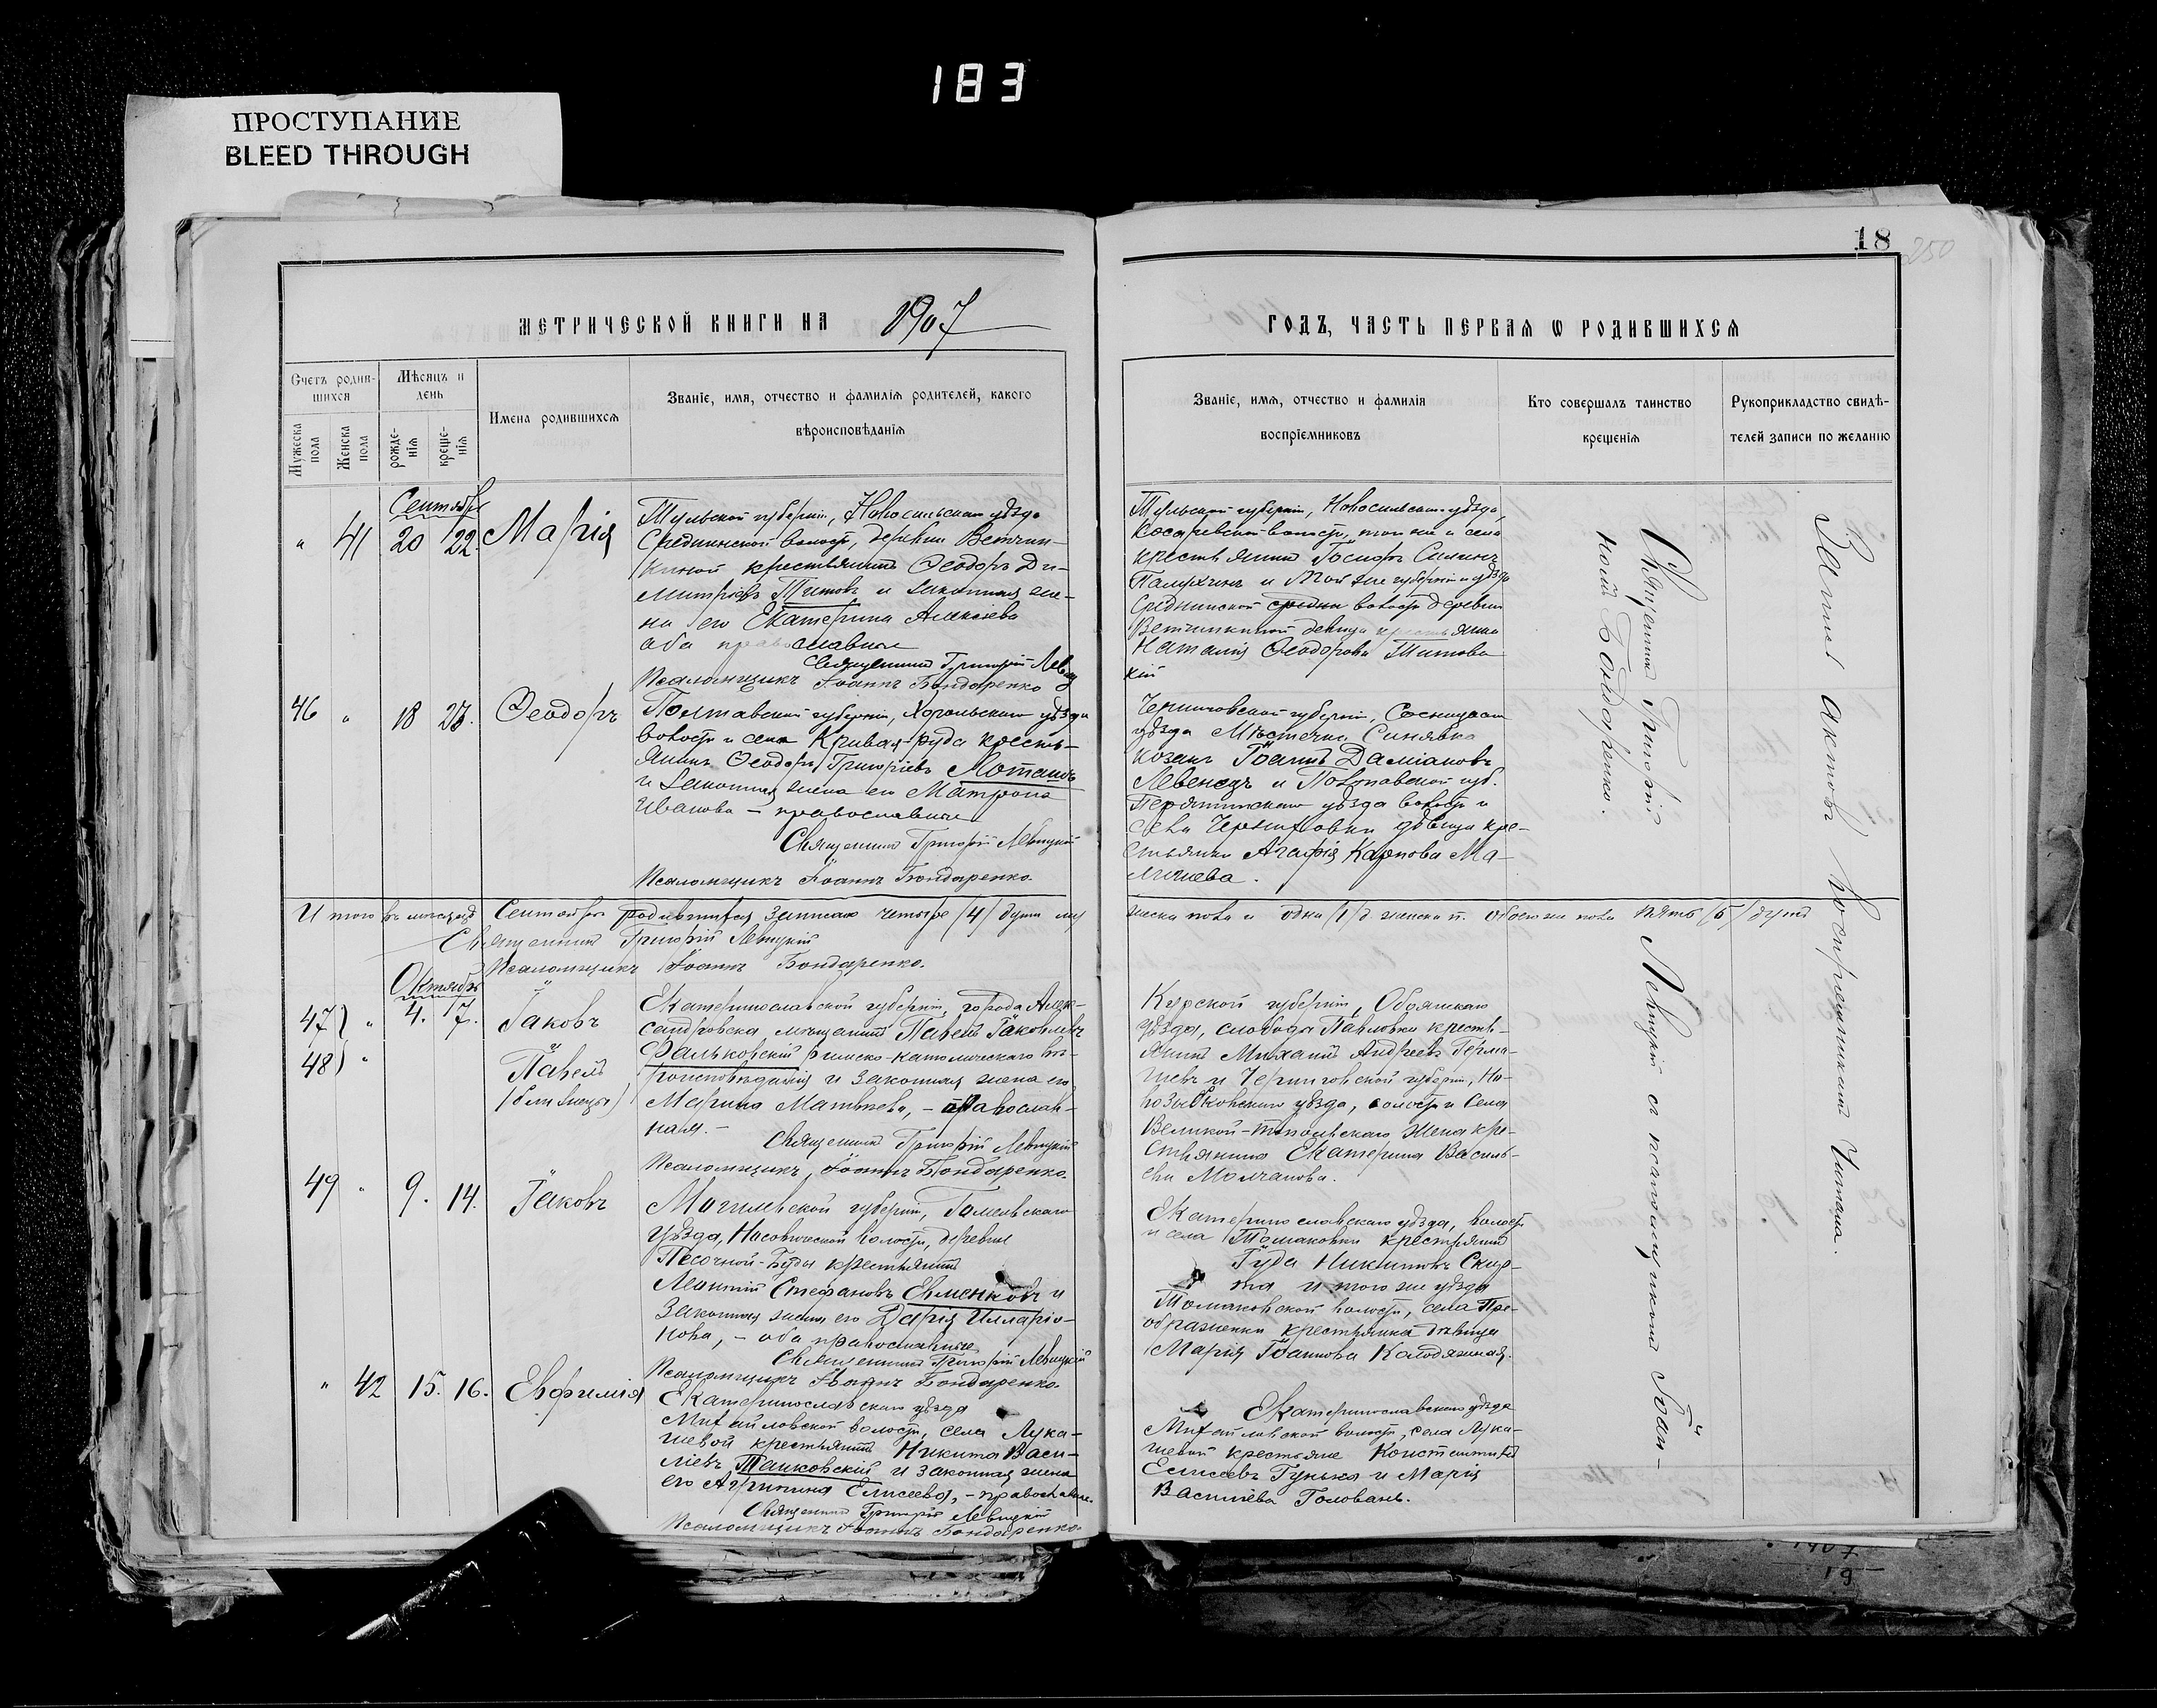 183
ПРОСТУПАНИЕ
BLEED THROUGH
18
250
МЕТРИЧЕСКОЙ КНИГИ НА 1907
ГОДЪ, ЧАСТЬ ПЕРВАЯ Ѡ РОДИВШИХСЯ
Счетъ родив-
шихся
Мужеска пола
Женска пола
Мѣсяцъ и
день
рожде-
нія
креще-
нія
Имена родившихся
Званіе, имя, отчество и фамилія родителей, какого
вѣроисповѣданія
Званіе, имя, отчество и фамилія
воспріемниковъ
Кто совершалъ таинство
крещенія
Рукоприкладство свидѣ-
телей записи по желанію
Сентябрь
" 41 20 22. Марія
Тульской губерніи, Новосильскаго уѣзда
волости, деревни Ветчин-
киной крестьянинъ Ѳеодоръ Ди-
митріевъ Титовъ и законная же-
на его Екатерина Алексіева
оба православные
Священникъ Григорій Левиц
кій
Псаломщикъ Іоаннъ Бондаренко
Тульской губерніи, Новосильскаго уѣзда,
волости, той же и села
крестьянинъ Іосифъ
и той же губерніи и уѣзда
волости деревни
Ветчинкиной девица
Наталія Ѳеодорова Титова
46 " 18 23. Ѳеодоръ
Полтавской губерніи, Хорольскаго уѣзда
волости и села Кривая-руда кресть-
янинъ Ѳеодоръ Григоріевъ
и законная жена его Матрона
Иванова – православные
Священникъ Григорій Левицкій
Псаломщикъ Іоаннъ Бондаренко
Черниговской губерніи, Сосницкаго
уѣзда Мѣстечка Синявка
козакъ Іоаннъ Даміановъ
Левенецъ и Полтавской губ.
Пирятинскаго уѣзда волости и
села девица кре-
стьянка Агафія Карпова Ма-
личева.
Итого въ мѣсяцѣ Сентябрѣ родившихся записано четыре (4) души му
жеска пола и одна (1) д. женска п. обоего же пола пять (5) душъ
Священникъ Григорій Левицкій
Псаломщикъ Іоаннъ Бондаренко.
Октябрь
47) " 4. 7. Іаковъ
48) " Павелъ
(близнецы)
Екатеринославской губерніи, города Алек-
сандровска мѣщанинъ Павелъ Іаковлевъ
Фальковскій римско-католическаго вѣ-
роисповѣданія и законная жена его
Марина Матѳеева, – православ-
ная. –
Священникъ Григорій Левицкій
Псаломщикъ, Іоаннъ Бондаренко.
Курской губерніи, Обоянскаго
уѣзда, слободы Павловки кресть-
янинъ Михаилъ Андреевъ
и Черниговской губерніи, Но-
возыбковскаго уѣзда, волости и села
Великой- жена кре-
стьянина Екатерина Василь-
ева Молчанова.
49 " 9. 14. Іаковъ
Могилевской губерніи, Гомельскаго
уѣзда, Носовичской волости, деревни
Песочной-Буды крестьянинъ
Леонтій Стефановъ Евменковъ и
законная жена его Дарія Илларіо-
нова, – оба православные
Священникъ Григорій Левицкій
Псаломщикъ Іоаннъ Бондаренко
Екатеринославскаго уѣзда, волости
и села Томаковки крестьянинъ
Іуда Никитовъ
и того же уѣзда
Томаковской волости, села Пре-
ображенки крестьянка дѣвица
Марія Іоаннова Колодяжная.
" 42 15. 16. Евфимія
Екатеринославскаго уѣзда
Михайловской волости, села Лука-
шевой крестьянинъ Никита Васи-
ліевъ и законная жена
его Агрипина Елисеева, – православные.
Священникъ Григорій Левицкій
Псаломщикъ Іоаннъ Бондаренко
Екатеринославскаго уѣзда
Михайловской волости, села Лука-
шевой крестьяне Константинъ
Елисеевъ Гунька и Марія
Василіева Головань.
Священникъ Григорій
Левицкій съ псаломщикомъ Іоан-
номъ Бондаренко.
Записи актовъ воспріемникамъ читана.
1907
19